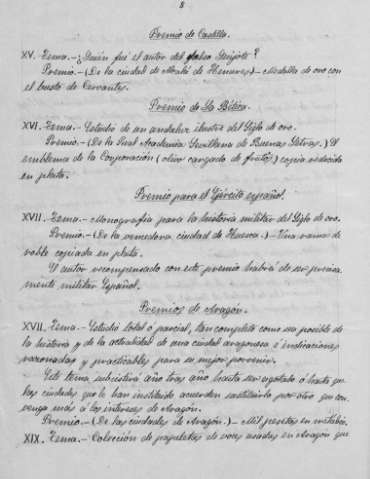 8
Premio de Castilla.
XV. Tema.-¿Quién fué el autor del falso Quijote?
Premio.-(De la ciudad de Alcalá de Henares)-Medalla de oro con
el busto de Cervantes.
Premio de La Bética.
XVI. Tema.-Estudio de un andaluz ilustre del Siglo de oro.
Premio.-(De la Real Academia Sevillana de Buenas Letras.) El
emblema de la Corporación (olivo cargado de frutos) copia reducida
en plata.
Premio para el Ejército español.
XVII. Tema.-Monografía para la historia militar del Siglo de oro.
Premio.-(De la vencedora ciudad de Huesca.)-Una rama de
roble copiada en plata.
El autor recompensado con este premio habrá de ser precisa-
mente militar Español.
Premios de Aragón.
XVII. Tema.-Estudio total ó parcial, tan completo como sea posible de
la historia y de la actualidad de una ciudad aragonesa é indicaciones
razonadas y practicables para su mejor porvenir.
Este tema subsistirá año tras año hasta ser agotado ó hasta que
las ciudades que le han instituido acuerden sustituirlo por otro que con-
venga más á los intereses de Aragón.
Premio.-(De las ciudades de Aragón.)-Mil pesetas en metálico.
XIX. Tema.-Colección de papeletas de voces usadas en Aragón que